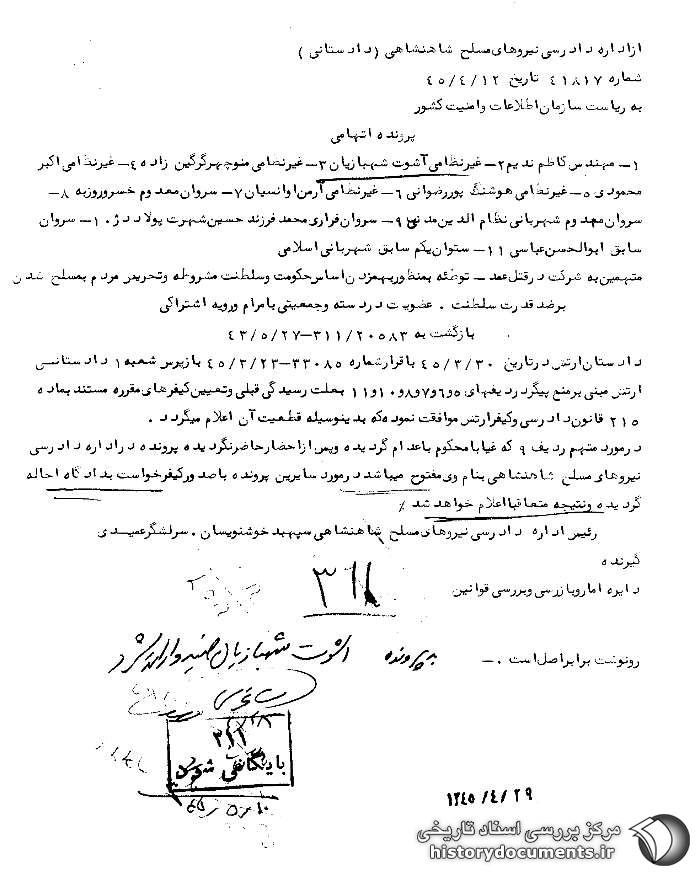 از اداره دادرسی نیروهای مسلح شاهنشاهی (دادستانی)
شماره ۴۱۸۱۷ تاریخ ۴۵/۴/۱۲
به ریاست سازمان اطلاعات وامنیت کشور
پرونده اتهامی
۱- مهندس کاظم ندیم ۲- غیرنظامی آشوت شهبازیان ۳- غیرنظامی منوچهر گرگین زاده ۴- غیرنظامی اکبر
محمودی ۵- غیرنظامی هوشنگ پوررضوانی ۶- غیرنظامی آرمن اوانسیان ۷- سروان معدوم خسرو روزبه ۸-
سروان معدوم شهربانی نظام الدین مدنی ۹- سروان فراری محمد فرزند حسین شهرت پولاد دژ ۱۰- سروان
سابق ابوالحسن عباسی ۱۱- ستوان یکم سابق شهربانی اسلامی
متهمین به شرکت در قتل عمد - توطئه بمنظور بهمزدن اساس حکومت وسلطنت مشروطه وتحریص مردم بمسلح شدن
برضد قدرت سلطنت . عضویت در دسته وجمعیتی بامرام ورویه اشتراکی
بازگشت به ۳۱۱/۲۰۵۸۳-۴۳/۵/۲۷
دادستان ارتش در تاریخ ۴۵/۳/۳۰ باقرار شماره ۳۳۰۸۵-۴۵/۳/۲۳ بازپرس شعبه ۱ دادستانی
ارتش مبنی برمنع پیگرد ردیفهای ۵و۶و۷و۸و۱۰و۱۱ بعلت رسیدگی قبلی وتعیین کیفرهای مقرره مستند بماده
۲۱۵ قانون دادرسی وکیفر ارتش موافقت نموده که بدینوسیله قطعیت آن اعلام میگردد .
در مورد متهم ردیف ۹ که غیابا محکوم باعدام گردیده وپس از احضار حاضر نگردیده پرونده در اداره دادرسی
نیروهای مسلح شاهنشاهی بنام وی مفتوح میباشد در مورد سایرین پرونده باصدور کیفرخواست بدادگاه احاله
گردیده ونتیجه متعاقبا اعلام خواهد شد ٪
رئیس اداره دادرسی نیروهای مسلح شاهنشاهی سپهبد خوشنویسان . سرلشگر عمیدی
گیرنده
دایره امار وبازرسی وبررسی قوانین
۳۱۱
رونوشت برابر اصل است . -
به پرونده اشوت شهبازیان
۳۱۱
بایگانی شود
۱۳۴۵/۴/۲۹
مرکز بررسی اسناد تاریخی
historydocuments.ir